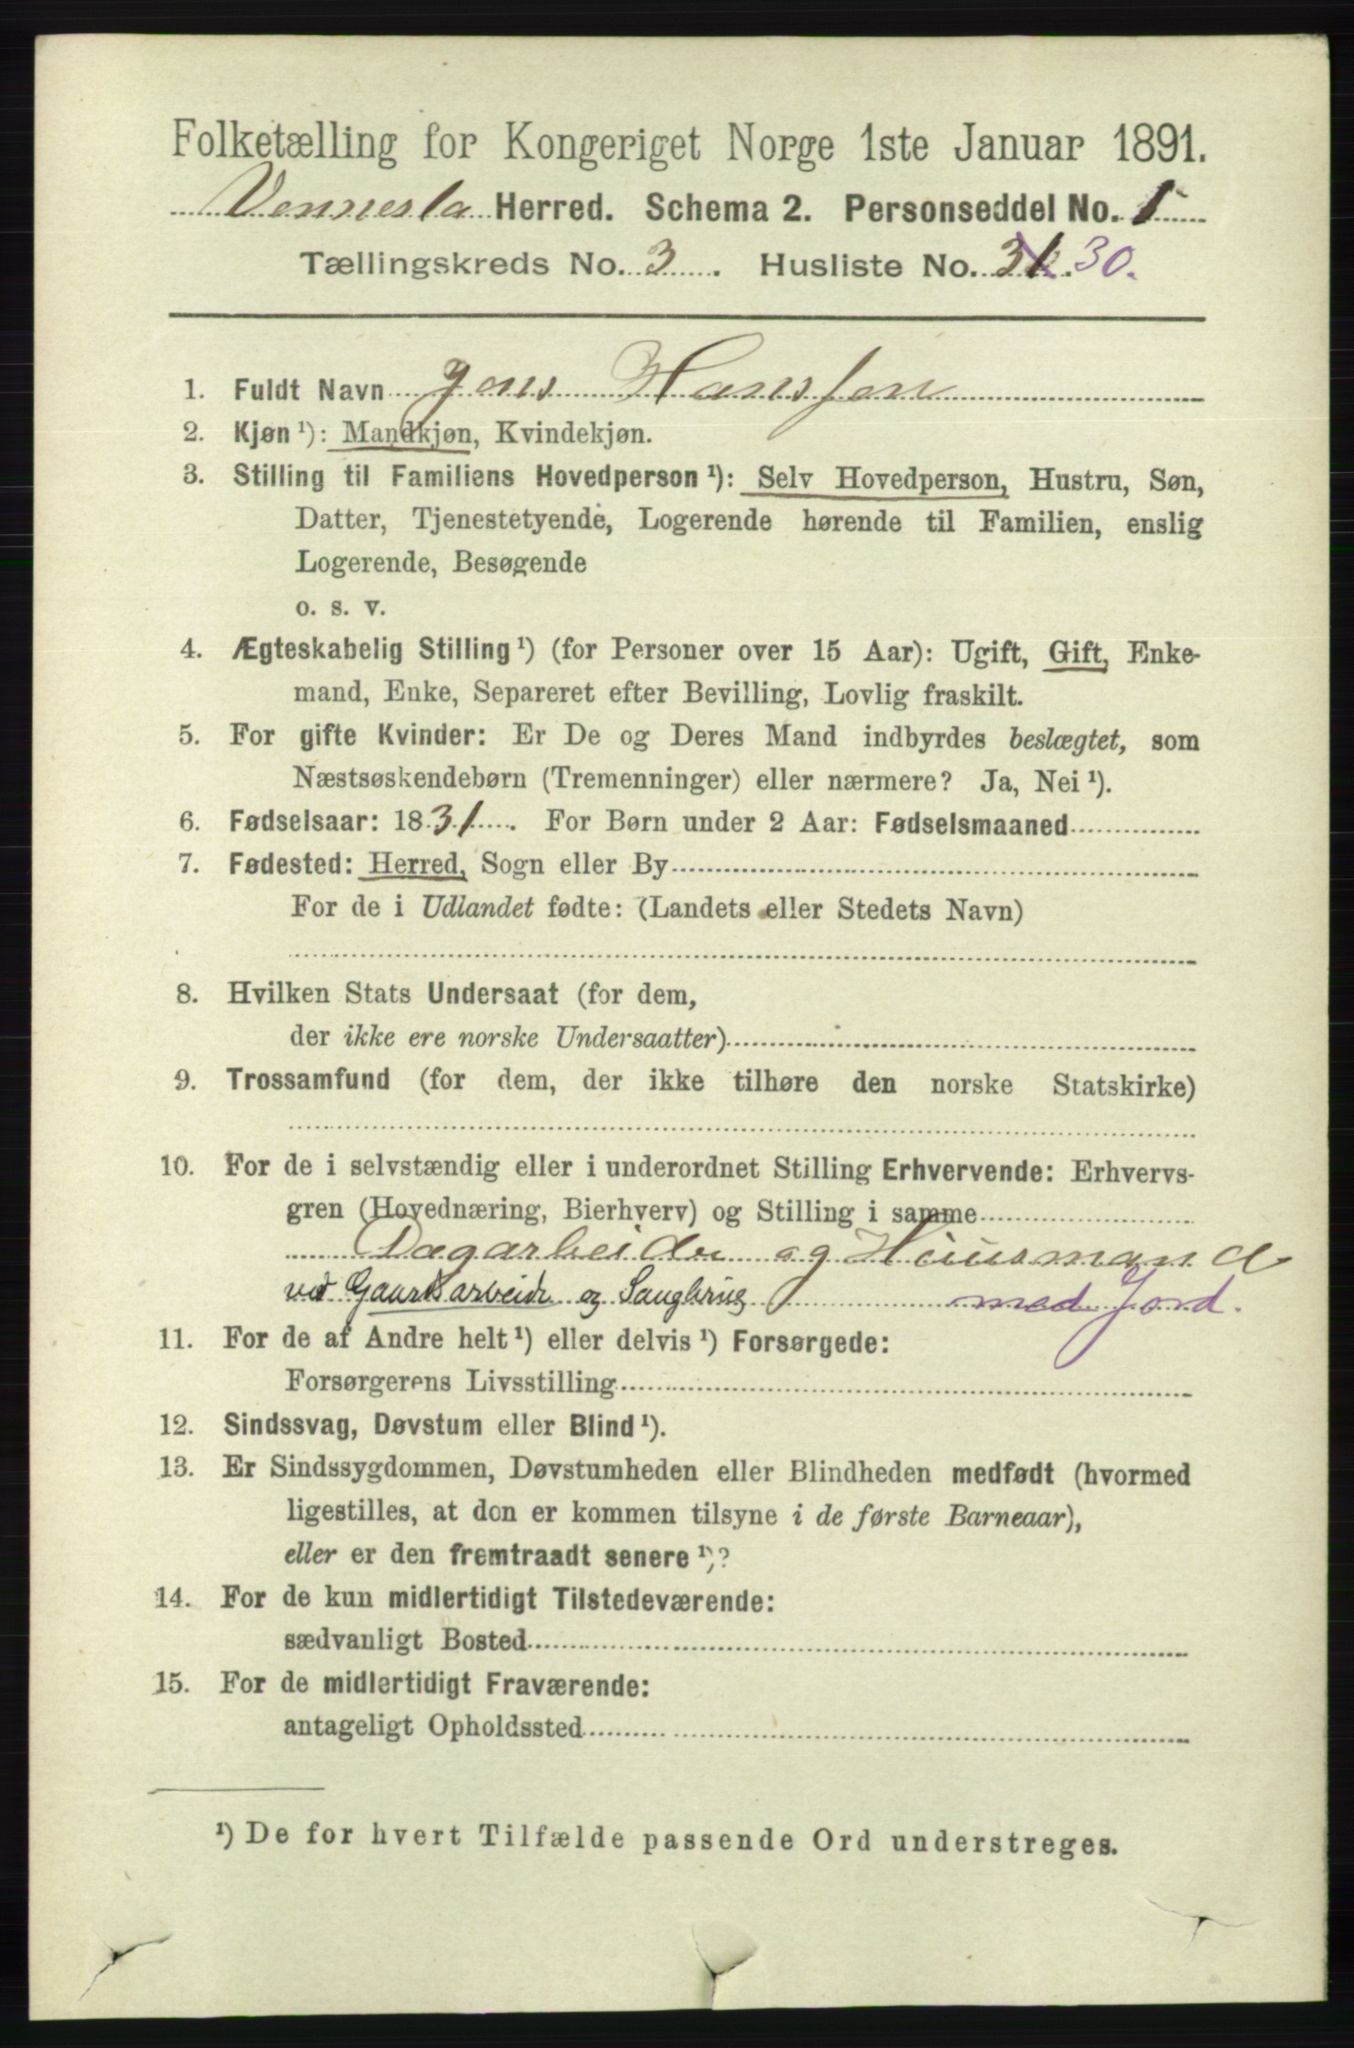 Folketælling for Kongeriget Norge 1ste Januar 1891.
Vennesla Herred. Schema 2. Personseddel No. 1
Tællingskreds No. 3. Husliste No. 31. 30.
1. Fuldt Navn Jens Hansen
2. Kjøn ¹): Mandkjøn, Kvindekjøn.
3. Stilling til Familiens Hovedperson ¹): Selv Hovedperson, Hustru, Søn,
Datter, Tjenestetyende, Logerende hørende til Familien, enslig
Logerende, Besøgende
o. s. v.
4. Ægteskabelig Stilling ¹) (for Personer over 15 Aar): Ugift, Gift, Enke-
mand, Enke, Separeret efter Bevilling, Lovlig fraskilt.
5. For gifte Kvinder: Er De og Deres Mand indbyrdes beslægtet, som
Næstsøskendebørn (Tremenninger) eller nærmere? Ja, Nei ¹).
6. Fødselsaar: 1831. For Børn under 2 Aar: Fødselsmaaned
7. Fødested: Herred, Sogn eller By
For de i Udlandet fødte: (Landets eller Stedets Navn)
8. Hvilken Stats Undersaat (for dem,
der ikke ere norske Undersaatter)
9. Trossamfund (for dem, der ikke tilhøre den norske Statskirke)
10. For de i selvstændig eller i underordnet Stilling Erhvervende: Erhvervs-
gren (Hovednæring, Bierhverv) og Stilling i samme
Dagarbeider og Huusmand
ved Gaardsarbeide og Saugbrug med Jord.
11. For de af Andre helt ¹) eller delvis ¹) Forsørgede:
Forsørgerens Livsstilling
12. Sindssvag, Døvstum eller Blind ¹).
13. Er Sindssygdommen, Døvstumheden eller Blindheden medfødt (hvormed
ligestilles, at don er kommen tilsyne i de første Barneaar),
eller er den fremtraadt senere ¹)?
14. For de kun midlertidigt Tilstedeværende:
sædvanligt Bosted
15. For de midlertidigt Fraværende:
antageligt Opholdssted
¹) De for hvert Tilfælde passende Ord understreges.